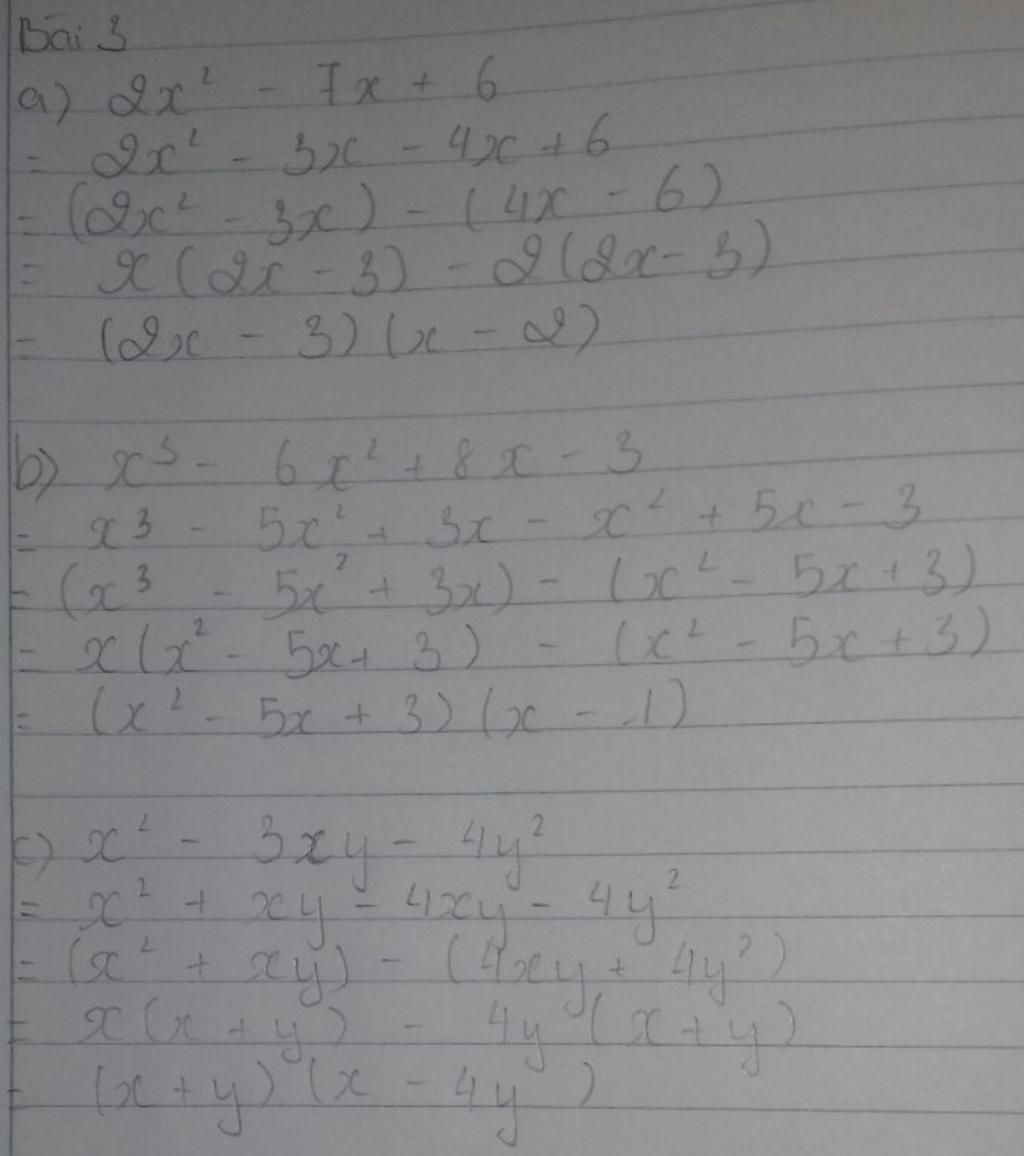 Bài 3
a) 2x² - 7x + 6
= 2x² - 3x - 4x + 6
= (2x² - 3x) - (4x - 6)
= x(2x - 3) - 2(2x - 3)
= (2x - 3)(x - 2)
b) x³ - 6x² + 8x - 3
= x³ - 5x² + 3x - x² + 5x - 3
= (x³ - 5x² + 3x) - (x² - 5x + 3)
= x(x² - 5x + 3) - (x² - 5x + 3)
= (x² - 5x + 3)(x - 1)
c) x² - 3xy - 4y²
= x² + xy - 4xy - 4y²
= (x² + xy) - (4xy + 4y²)
= x(x + y) - 4y(x + y)
= (x + y)(x - 4y)